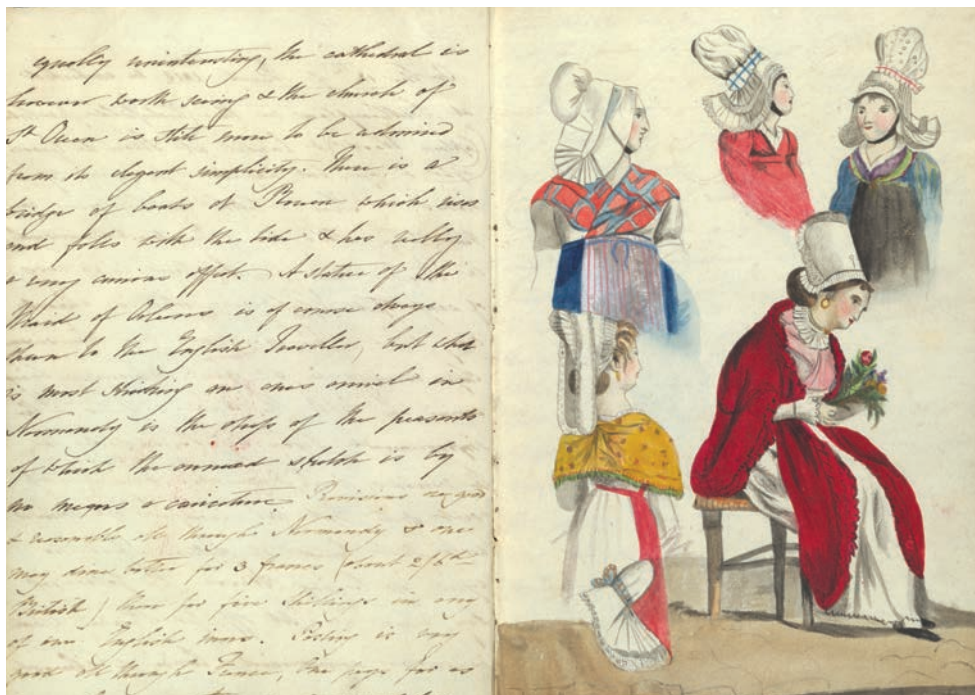 equally uninteresting, the cathedral is
however worth seeing & the church of
St Ouen is still more to be admired
from its elegant simplicity. There is a
bridge of boats at Rouen which rises
and falls with the tide & has really
a very curious effect. A statue of the
Maid of Orleans is of course always
shewn to the English Traveller, but what
is most striking on ones arrival in
Normandy is the dress of the peasants
of which the annexed sketch is by
no means a caricature. Provisions are good
& reasonable all through Normandy & one
may dine better for 3 francs (about 2/6th
British) than for five shillings in any
of our English inns. Posting is very
good all through France, they pay for us